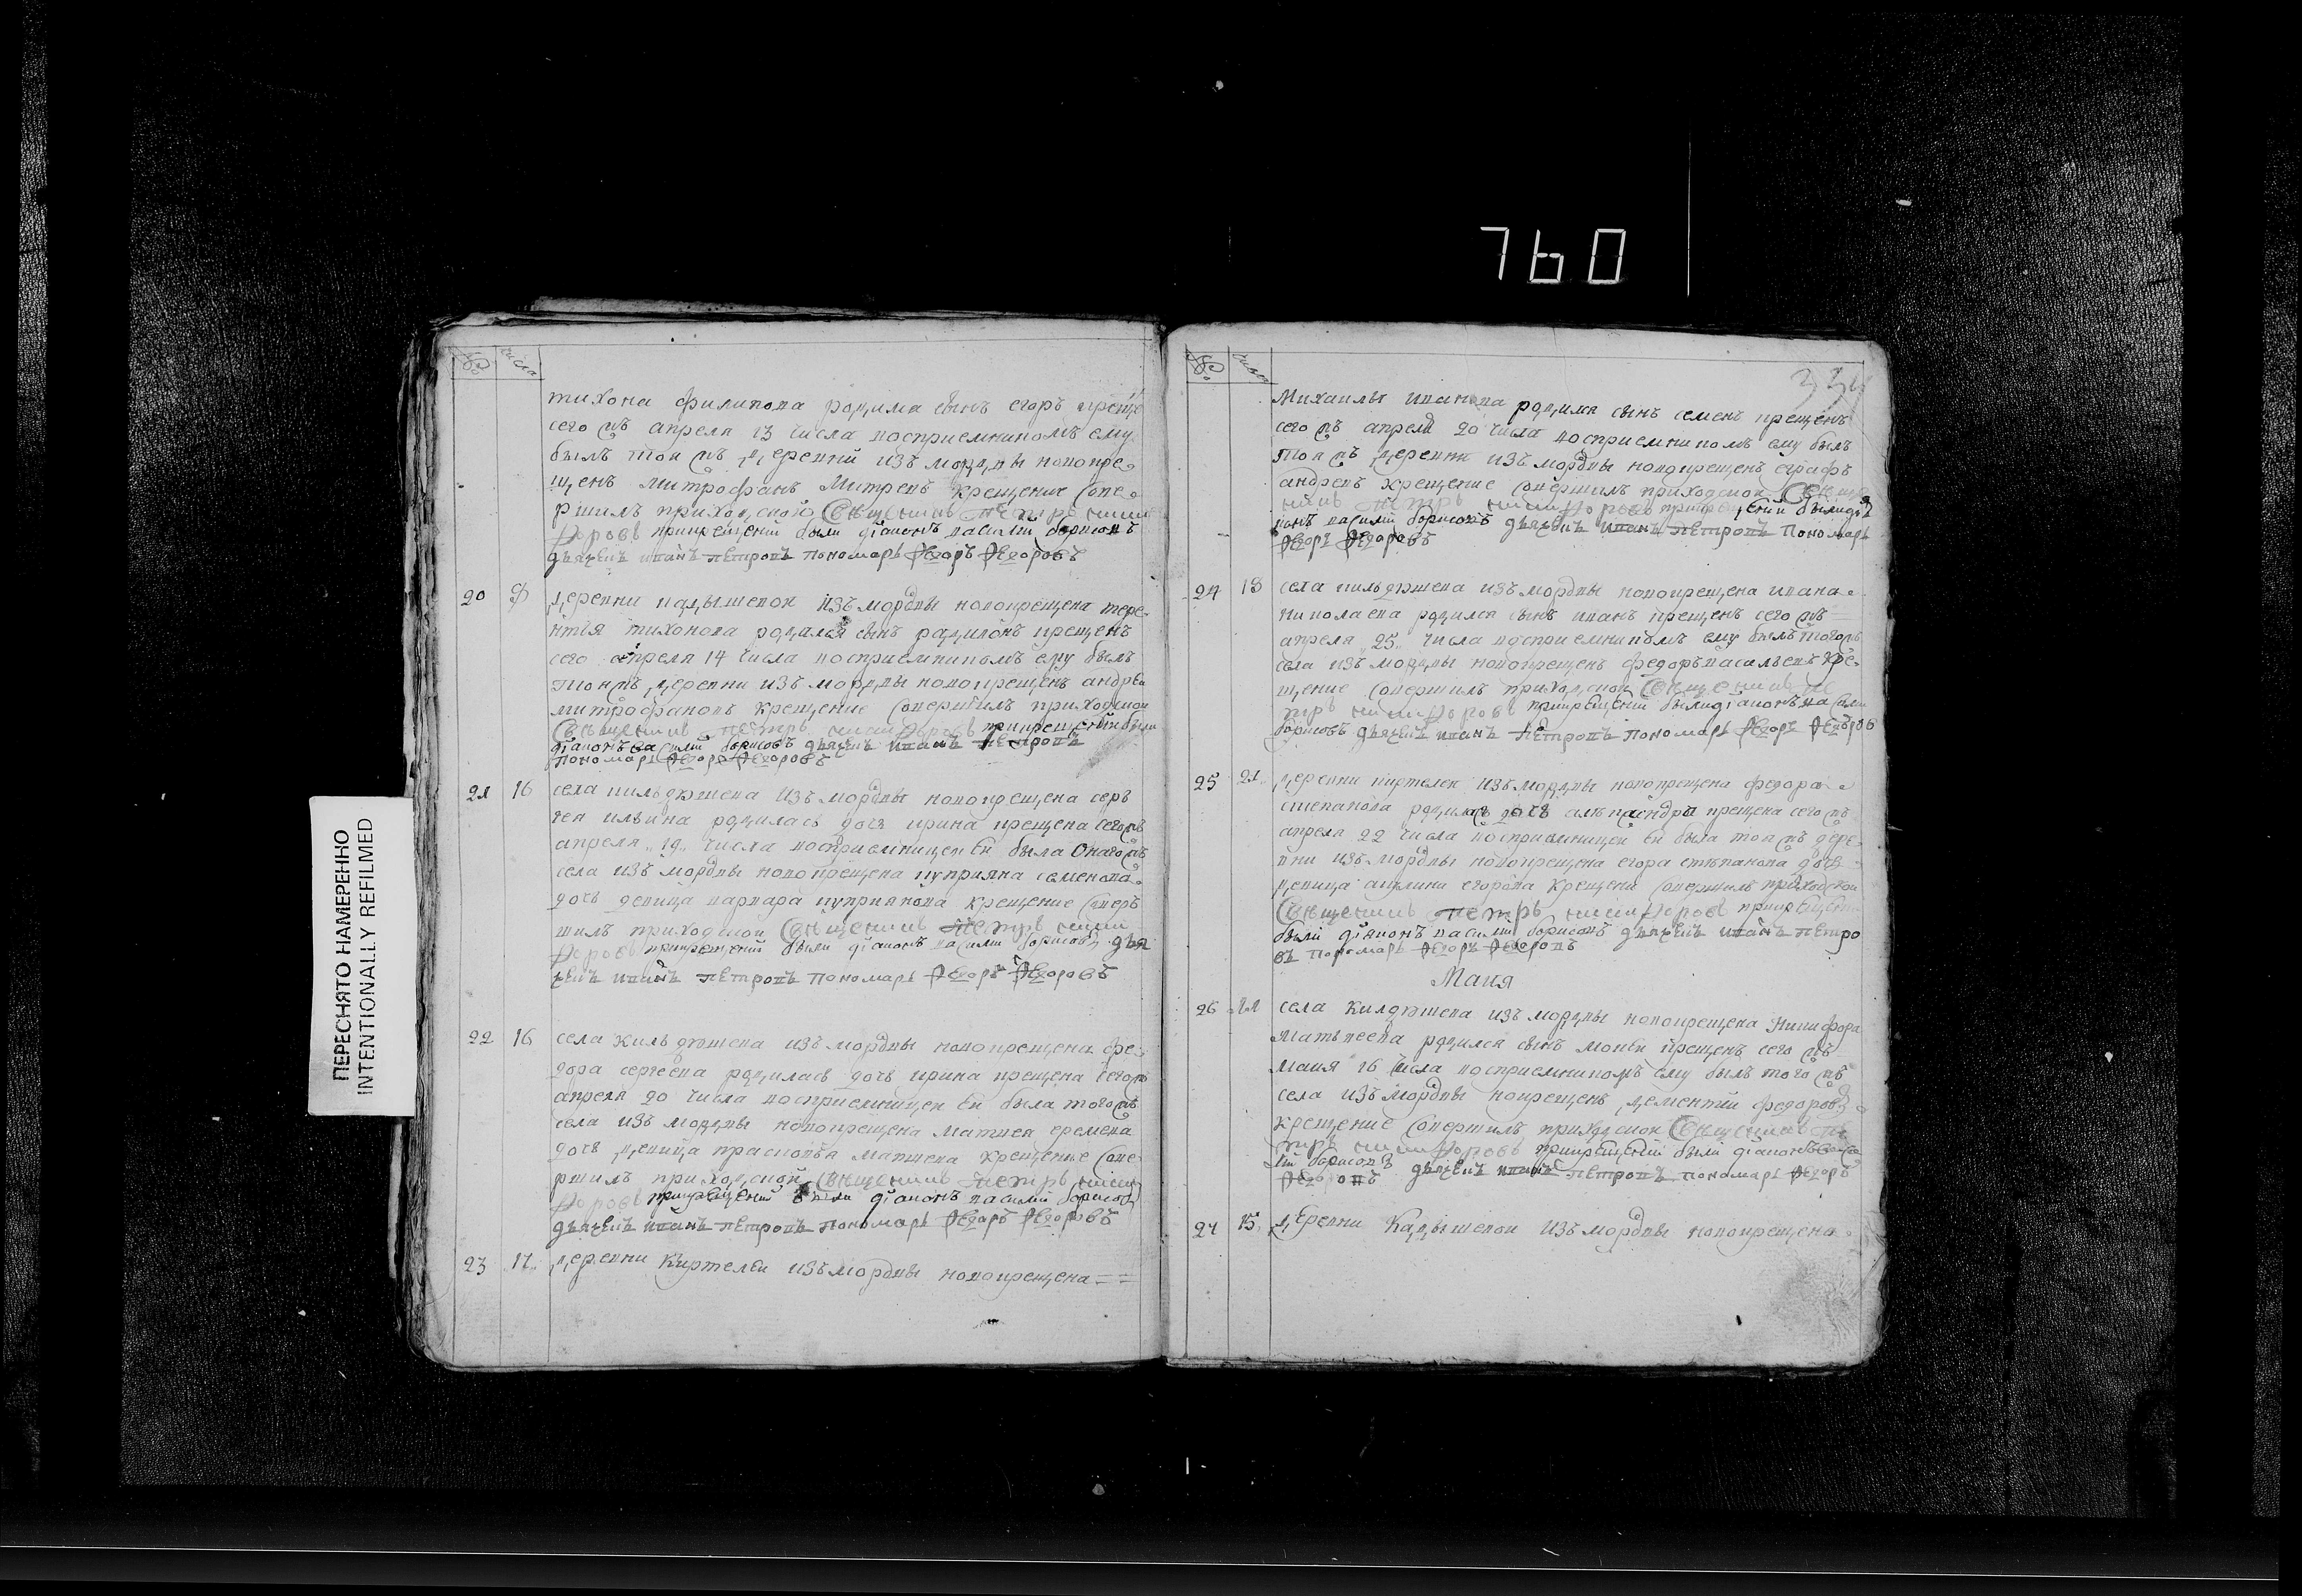 760
ПЕРЕСНЯТО НАМЕРЕННО
INTENTIONALLY REFILMED
№ числа
тихона филипова родился сынъ егоръ креще
сего мцъ апреля 13 числа восприемникомъ ему
былъ той мъ деревни изъ мордвы новокре
щенъ митрофанъ Митревъ крещение сове
ршилъ приходской Священникъ петръ ники
форовъ прикрещении были дiаконъ василий борисовъ
дьячекъ иванъ петровъ пономарь Федоръ Федоровъ
20 9 деревни кадышевой изъ мордвы новокрещена тере
нтья тихонова родился сынъ радионъ крещенъ
сего апреля 14 числа восприемникомъ ему былъ
той мъ деревни изъ мордвы новокрещенъ андреи
митрофановъ крещение совершилъ приходской
Священникъ петръ никифоровъ прикрещении были
дiаконъ василий борисовъ дьячекъ иванъ петровъ
пономарь Федоръ Федоровъ
21 16 села кильдюшева изъ мордвы новокрещена сер
гея ильина родилась дочь ирина крещена сего мъ
апреля 19 числа восприемницей ей была онаго мъ
села изъ мордвы новокрещена куприяна семенова
дочь девица варвара куприянова крещение совер
шилъ приходской Священникъ Петръ ники
форовъ прикрещении были дiаконъ василии борисовъ дья
чекъ иванъ петровъ пономарь Федоръ Федоровъ
22 16 села кильдюшева изъ мордвы новокрещена фе
дора сергеева родилась дочь ирина крещена сего мъ
апреля 20 числа восприемницей ей была того мъ
села изъ мордвы новокрещена матвея еремеева
дочь девица прасковья матвеева крещение сове
ршилъ приходской Священникъ Петръ ники
форовъ прикрещении были дiаконъ василий борисовъ
дьячекъ иванъ петровъ пономарь Федоръ Федоровъ
23 17 деревни Киртелей изъ мордвы новокрещена
№ числа
334
Михаилы иванова родился сынъ семенъ крещенъ
сего мъ апреля 20 числа восприемникомъ ему былъ
той мъ деревни изъ мордвы новокрещенъ еграфъ
андревъ крещение совершилъ приходской Свяще
нникъ петръ никифоровъ прикрещении были дiа
конъ василий борисовъ дьячекъ иванъ петровъ пономарь
Федоръ Федоровъ
24 18 села кильдюшева изъ мордвы новокрещена ивана
николаева родился сынъ иванъ крещенъ сего мъ
апреля 25 числа восприемникомъ ему былъ того мъ
села изъ мордвы новокрещенъ федоръ васильевъ кре
щение совершилъ приходской Священникъ пе
тръ никифоровъ прикрещении были дiаконъ василий
борисовъ дьячекъ иванъ петровъ пономарь Федоръ Федоровъ
25 21 деревни киртелей изъ мордвы новокрещена федора
степанова родилась дочь александра крещена сего мъ
апреля 22 числа восприемницей ей была той мъ дере
вни изъ мордвы новокрещена егора степанова дочь
девица акулина егорова крещение совершилъ приходской
Священникъ Петръ никифоровъ прикрещении
были дiаконъ василий борисовъ дьячекъ иванъ петро
въ пономарь Федоръ Федоровъ
Маия
26 села Килдюшева изъ мордвы новокрещена Никифора
Матвеева родился сынъ мокей крещенъ сего мъ
маия 16 числа восприемникомъ ему былъ того мъ
села изъ мордвы новкрещенъ дементии федоровъ
крещение совершилъ приходской Священникъ пе
тръ никифоровъ прикрещении были дiаконъ васи
лий борисовъ дьячекъ иванъ петровъ пономарь Федоръ
Федоровъ
27 15 деревни Кадышевой изъ мордвы новокрещена